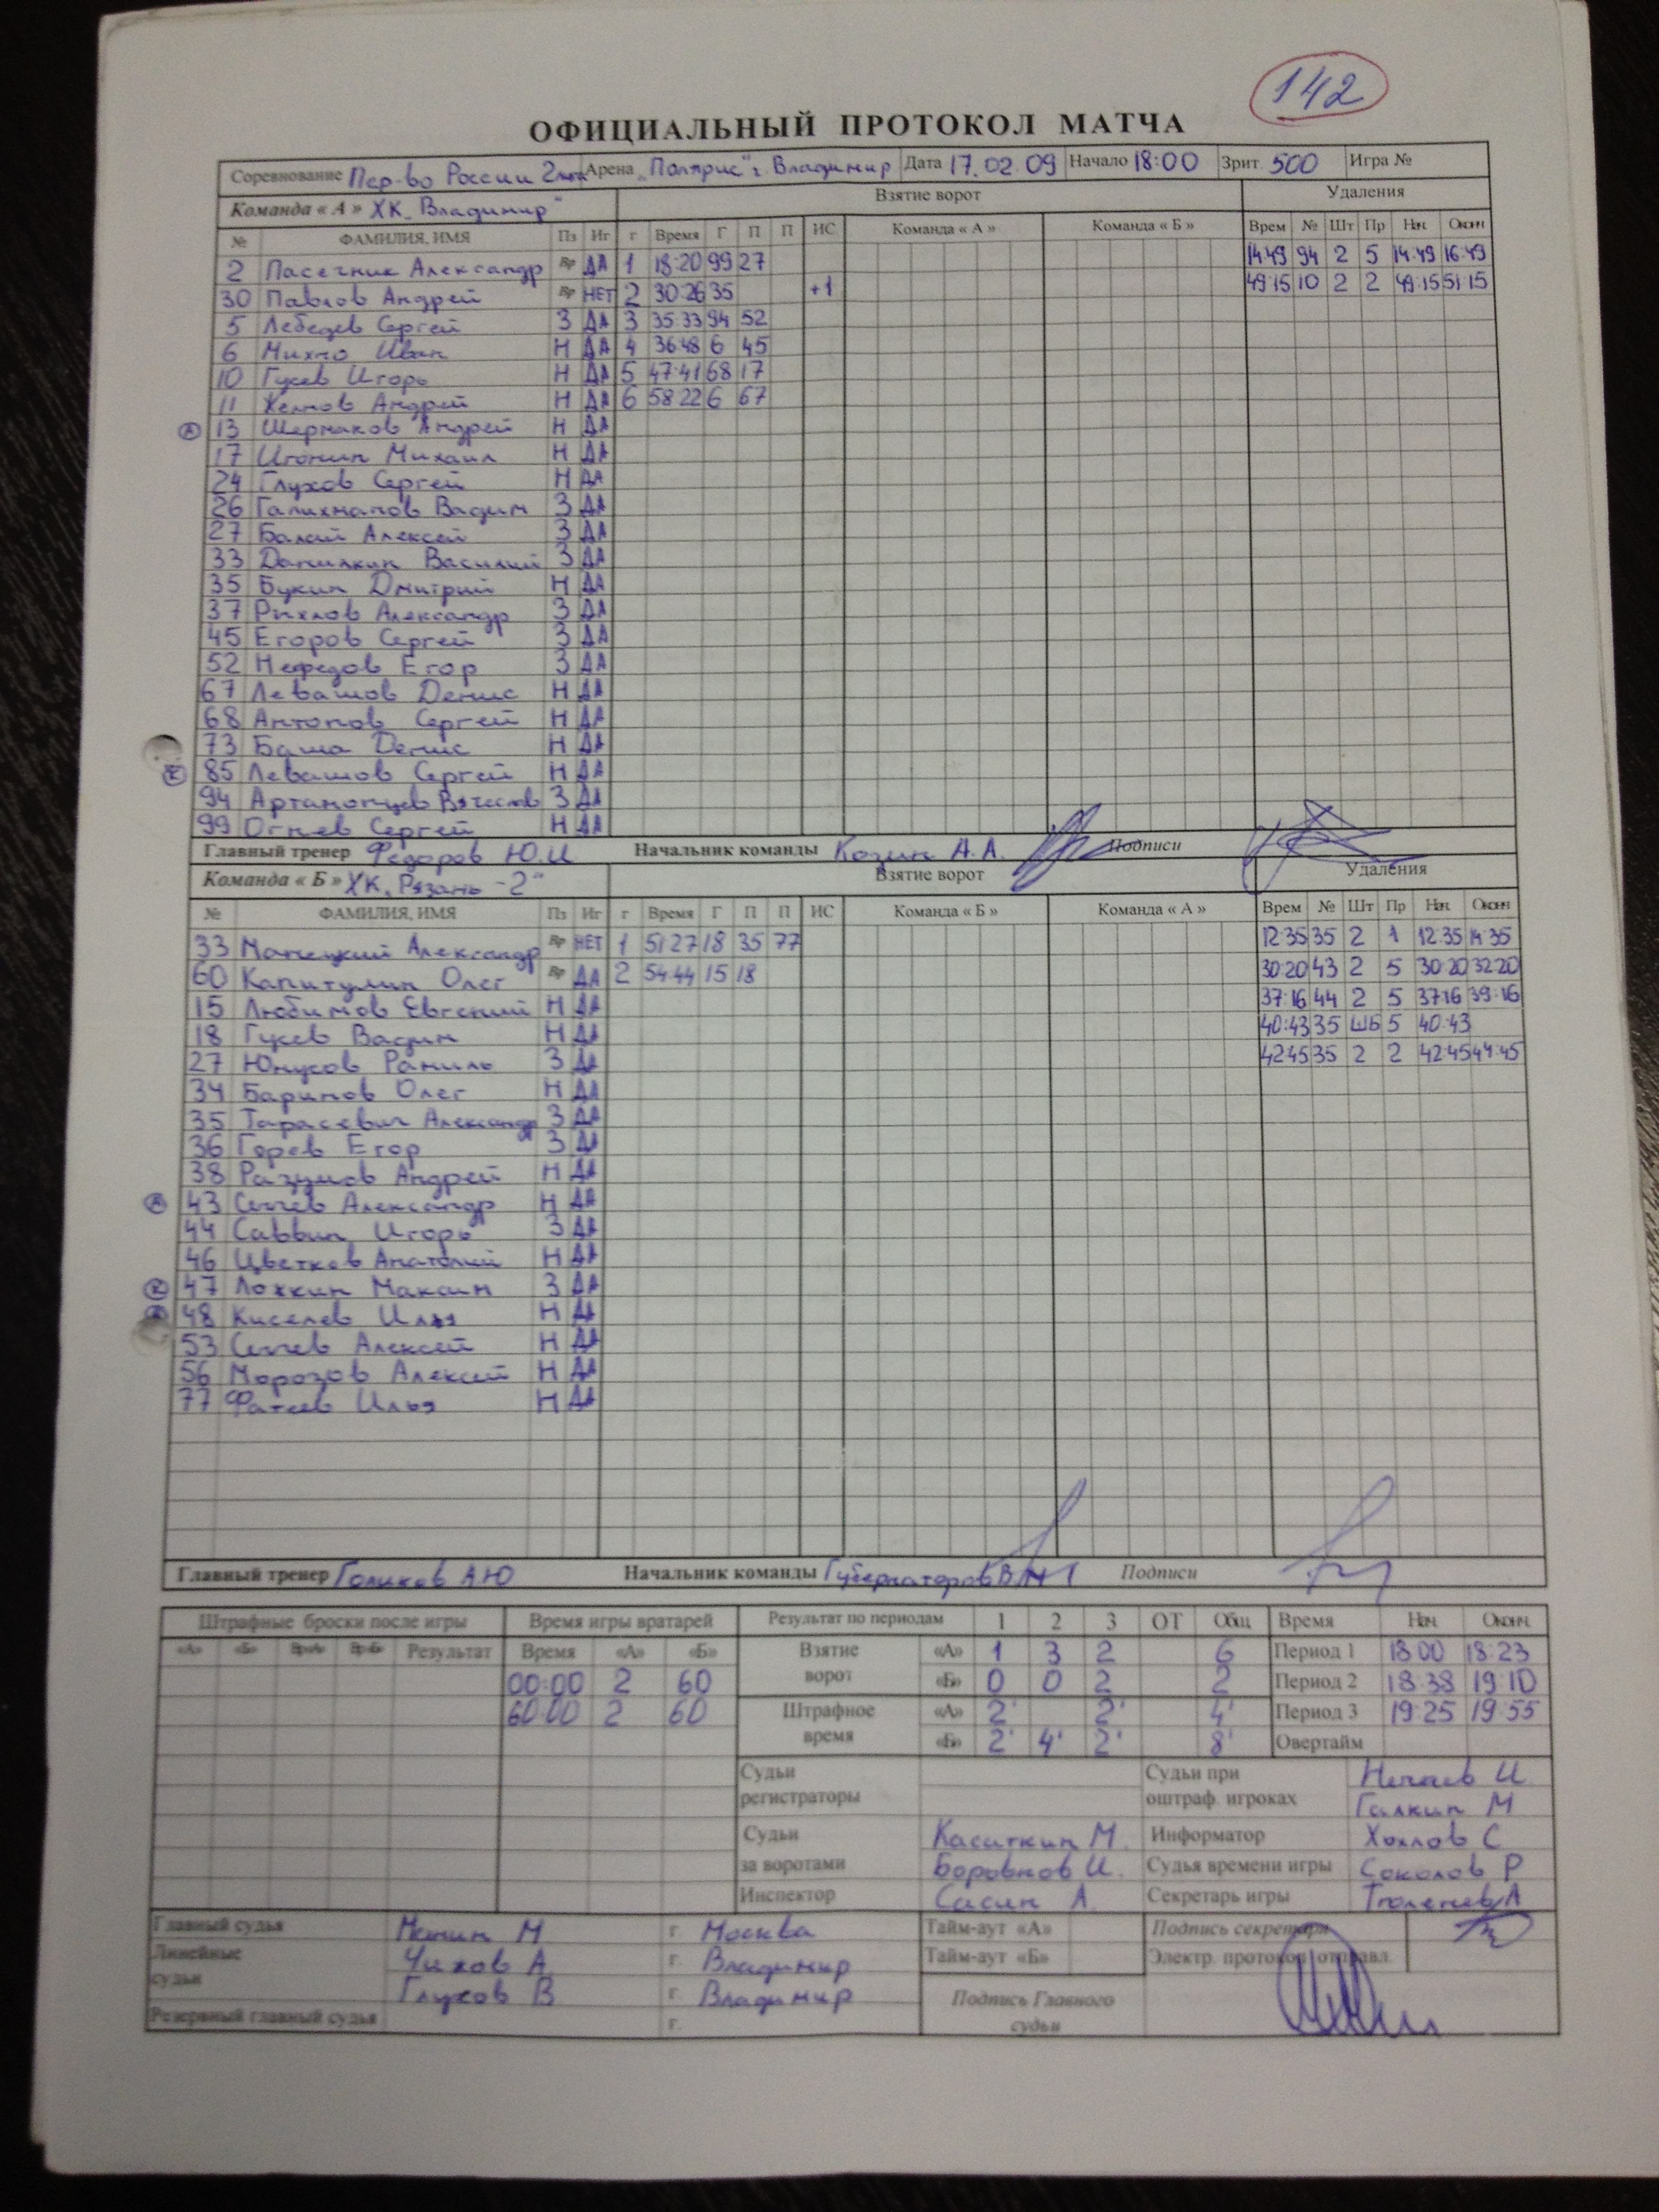 142
ОФИЦИАЛЬНЫЙ ПРОТОКОЛ МАТЧА
Соревнование Пер-во России Арена „Полярис" г. Владимир Дата 17.02.09 Начало 18:00 Зрит. 500 Игра №
Команда « А » ХК „Владимир" Взятие ворот Удаления
№ ФАМИЛИЯ, ИМЯ Пз Иг г Время Г П П ИС Команда « А » Команда « Б » Врем № Шт Пр Нач. Оконч
2 Пасечник Александр Вр ДА 1 18:20 99 27 14:49 94 2 5 14:49 16:49
30 Павлов Андрей Вр НЕТ 2 30:26 35 +1 49:15 10 2 2 49:15 51:15
5 Лебедев Сергей З ДА 3 35:33 94 52
6 Михно Иван Н ДА 4 36:48 6 45
10 Гусев Игорь Н ДА 5 47:41 68 17
11 Андрей Н ДА 6 58 22 6 67
А 13 Шермаков Андрей Н ДА
17 Игонин Михаил Н ДА
24 Глухов Сергей Н ДА
26 Галихманов Вадим З ДА
27 Алексей З ДА
33 Данилкин Василий З ДА
35 Букин Дмитрий Н ДА
37 Рыхлов Александр З ДА
45 Егоров Сергей З ДА
52 Нефедов Егор З ДА
67 Левашов Денис Н ДА
68 Антонов Сергей Н ДА
73 Баша Денис Н ДА
К 85 Левашов Сергей Н ДА
94 З ДА
99 Огнев Сергей Н ДА
Главный тренер Федоров Ю.И Начальник команды Козин А.А. Подписи
Команда « Б » ХК „Рязань-2" Взятие ворот Удаления
№ ФАМИЛИЯ, ИМЯ Пз Иг г Время Г П П ИС Команда « Б » Команда « А » Врем № Шт Пр Нач. Оконч
33 Александр Вр НЕТ 1 51 27 18 35 77 12:35 35 2 1 12:35 14:35
60 Капитулин Олег Вр ДА 2 54:44 15 18 30:20 43 2 5 30:20 32:20
15 Любимов Евгений Н ДА 37:16 44 2 5 37:16 39:16
18 Гусев Вадим Н ДА 40:43 35 ШБ 5 40:43
27 Юнусов Рамиль З ДА 42:45 35 2 2 42:45 44:45
34 Баринов Олег Н ДА
35 Тарасевич Александр З ДА
36 Горев Егор З ДА
38 Разумов Андрей Н ДА
А 43 Александр Н ДА
44 Саввин Игорь З ДА
46 Цветков Анатолий Н ДА
К 47 Лохкин Максим З ДА
А 48 Киселев Илья Н ДА
53 Алексей Н ДА
56 Морозов Алексей Н ДА
77 Фатеев Илья Н ДА
Главный тренер Голиков А.Ю Начальник команды Губернаторов В.Н Подписи
Штрафные броски после игры Время игры вратарей Результат по периодам 1 2 3 ОТ Общ Время Нач. Оконч.
«А» «Б» Вр«А» Вр«Б» Результат Время «А» «Б» Взятие ворот «А» 1 3 2 6 Период 1 18 00 18:23
00:00 2 60 «Б» 0 0 2 2 Период 2 18:38 19:10
60:00 2 60 Штрафное время «А» 2' 2' 4' Период 3 19:25 19:55
«Б» 2' 4' 2' 8' Овертайм
Судьи регистраторы Судьи при оштраф. игроках Нечаев И
Галкин М
Судьи Касаткин М. Информатор Хохлов С
за воротами Боровков И. Судья времени игры Соколов Р
Инспектор Сасин А. Секретарь игры Тюленев А
Главный судья М г. Москва Тайм-аут «А» Подпись секретаря
Линейные Чихов А. г. Владимир Тайм-аут «Б» Электр. протокол отправл.
судьи Глухов В г. Владимир Подпись Главного
Резервный главный судья г. судьи